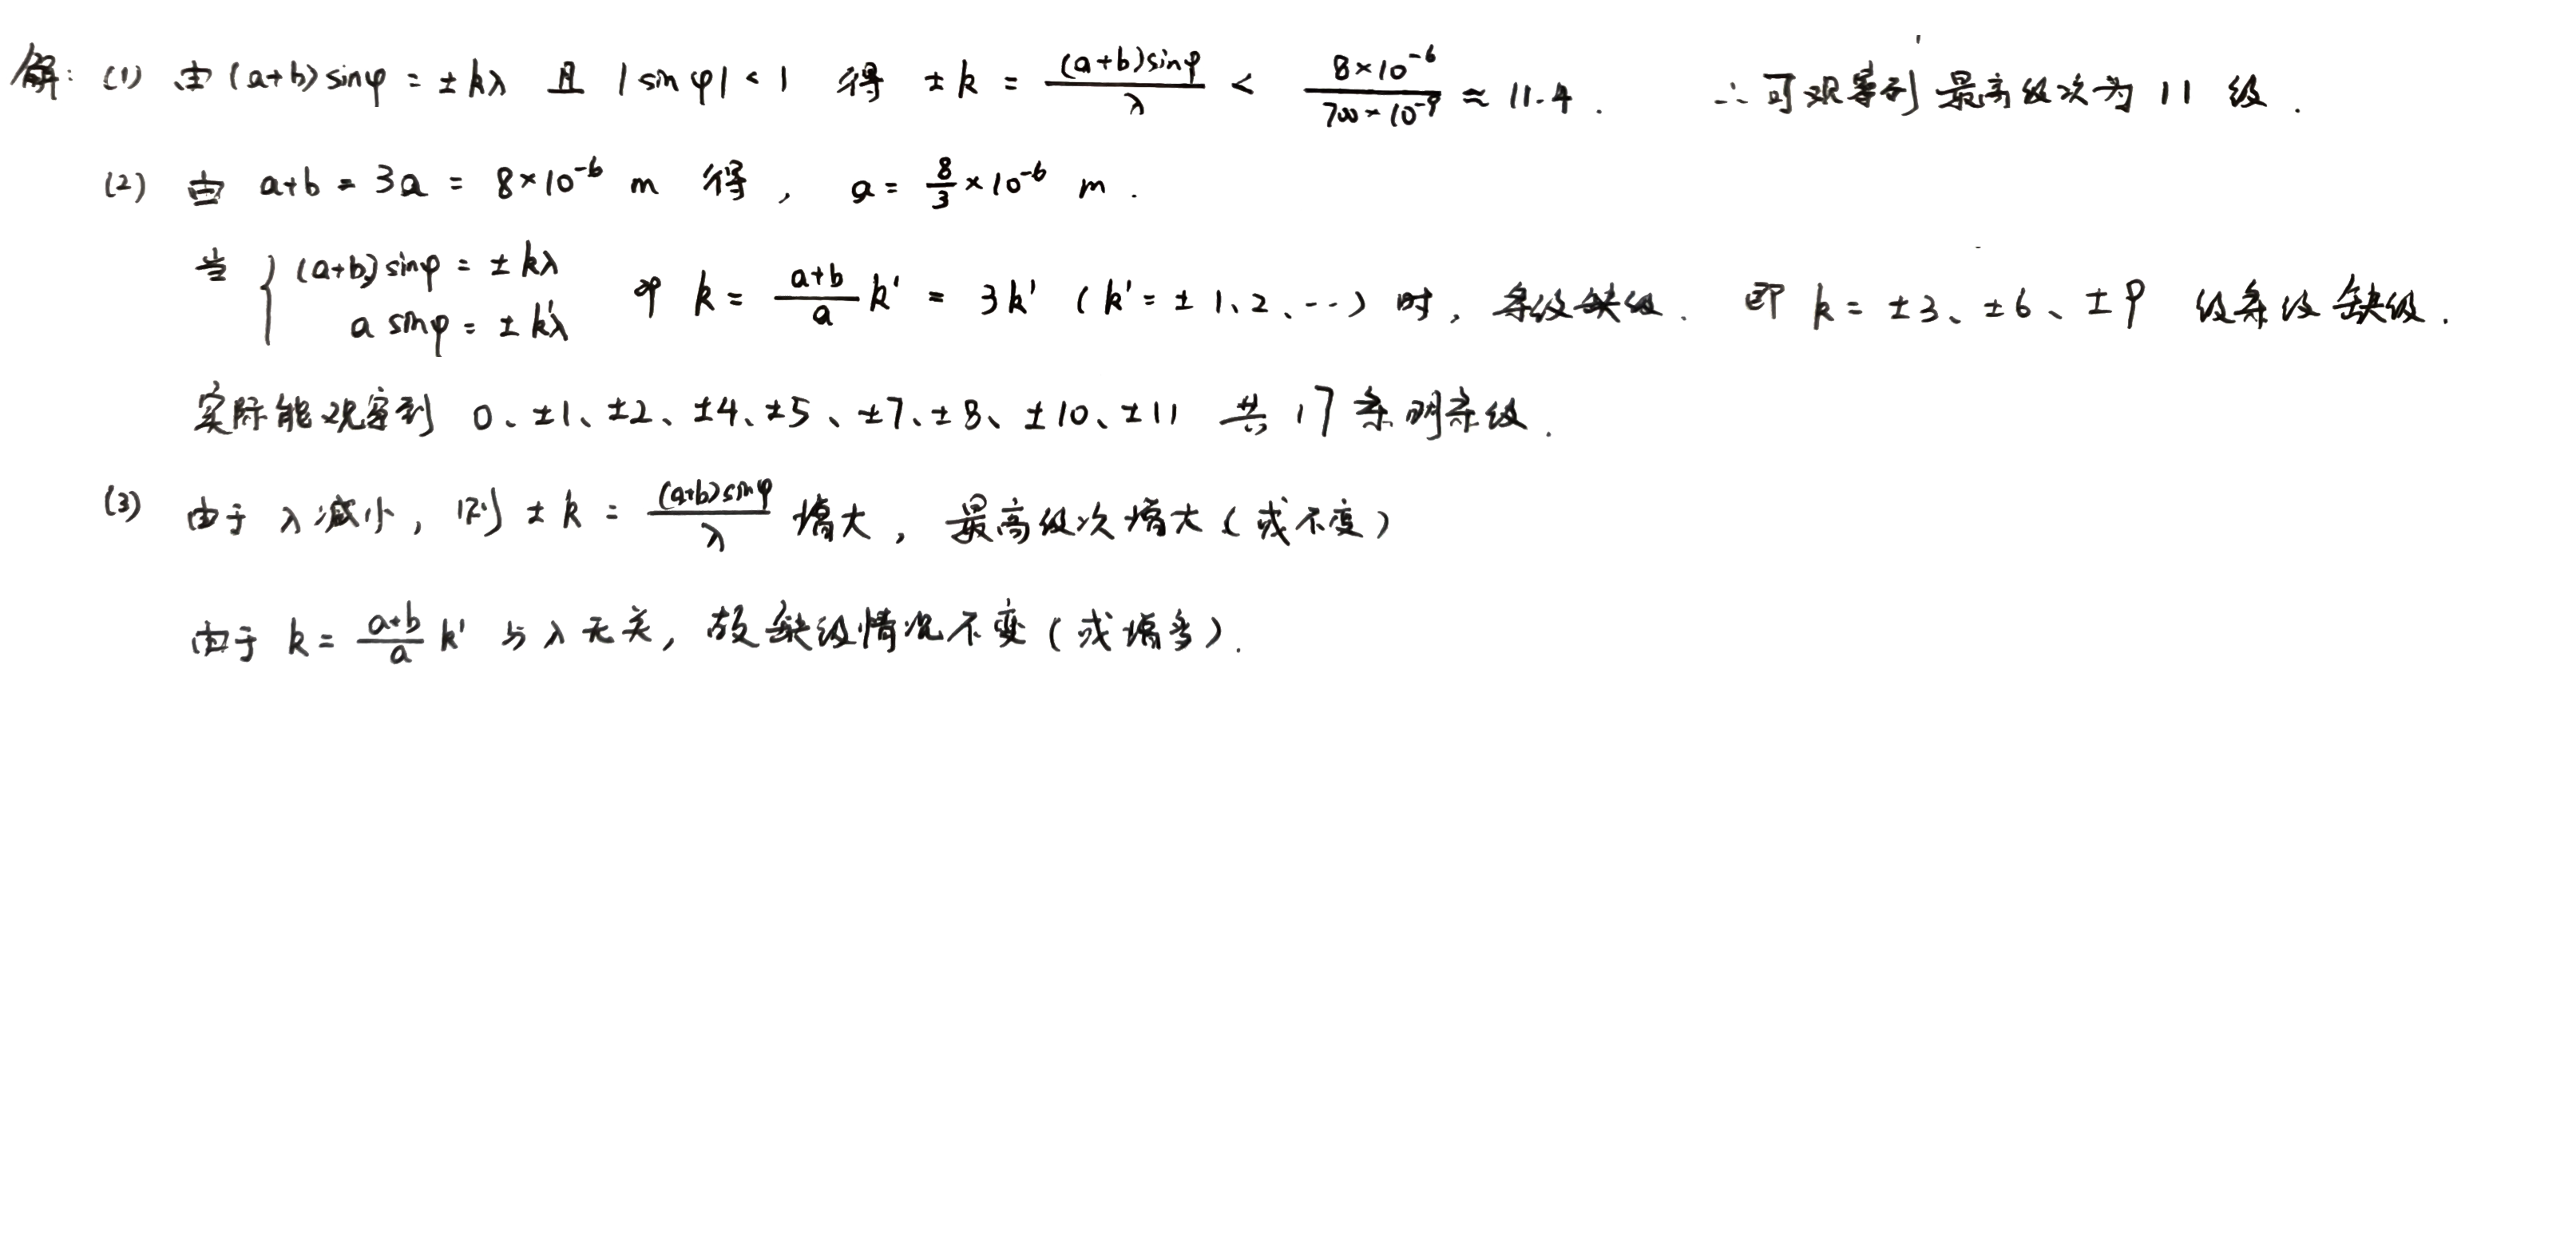 解: (1) 由 (a+b) sinφ = ± kλ 且 |sin φ| < 1 得 ± k = \frac{(a+b)sinφ}{λ} < \frac{8×10^{-6}}{700×10^{-9}} ≈ 11.4 . ∴ 可观察到最高级次为 11 级 .
(2) 由 a+b = 3a = 8×10^{-6} m 得 , a = \frac{8}{3}×10^{-6} m .
当 { (a+b) sinφ = ± kλ
a sinφ = ± k'λ 即 k = \frac{a+b}{a} k' = 3k' (k' = ± 1、2、…) 时 , 条级缺级 . 即 k = ±3、±6、±9 级条级缺级 .
实际能观察到 0、±1、±2、±4、±5、±7、±8、±10、±11 共 17 条明条级 .
(3) 由于 λ 减小 , 则 ± k = \frac{(a+b)sinφ}{λ} 增大 , 最高级次增大 ( 或不变 )
由于 k = \frac{a+b}{a} k' 与 λ 无关 , 故缺级情况不变 ( 或增多 ) .